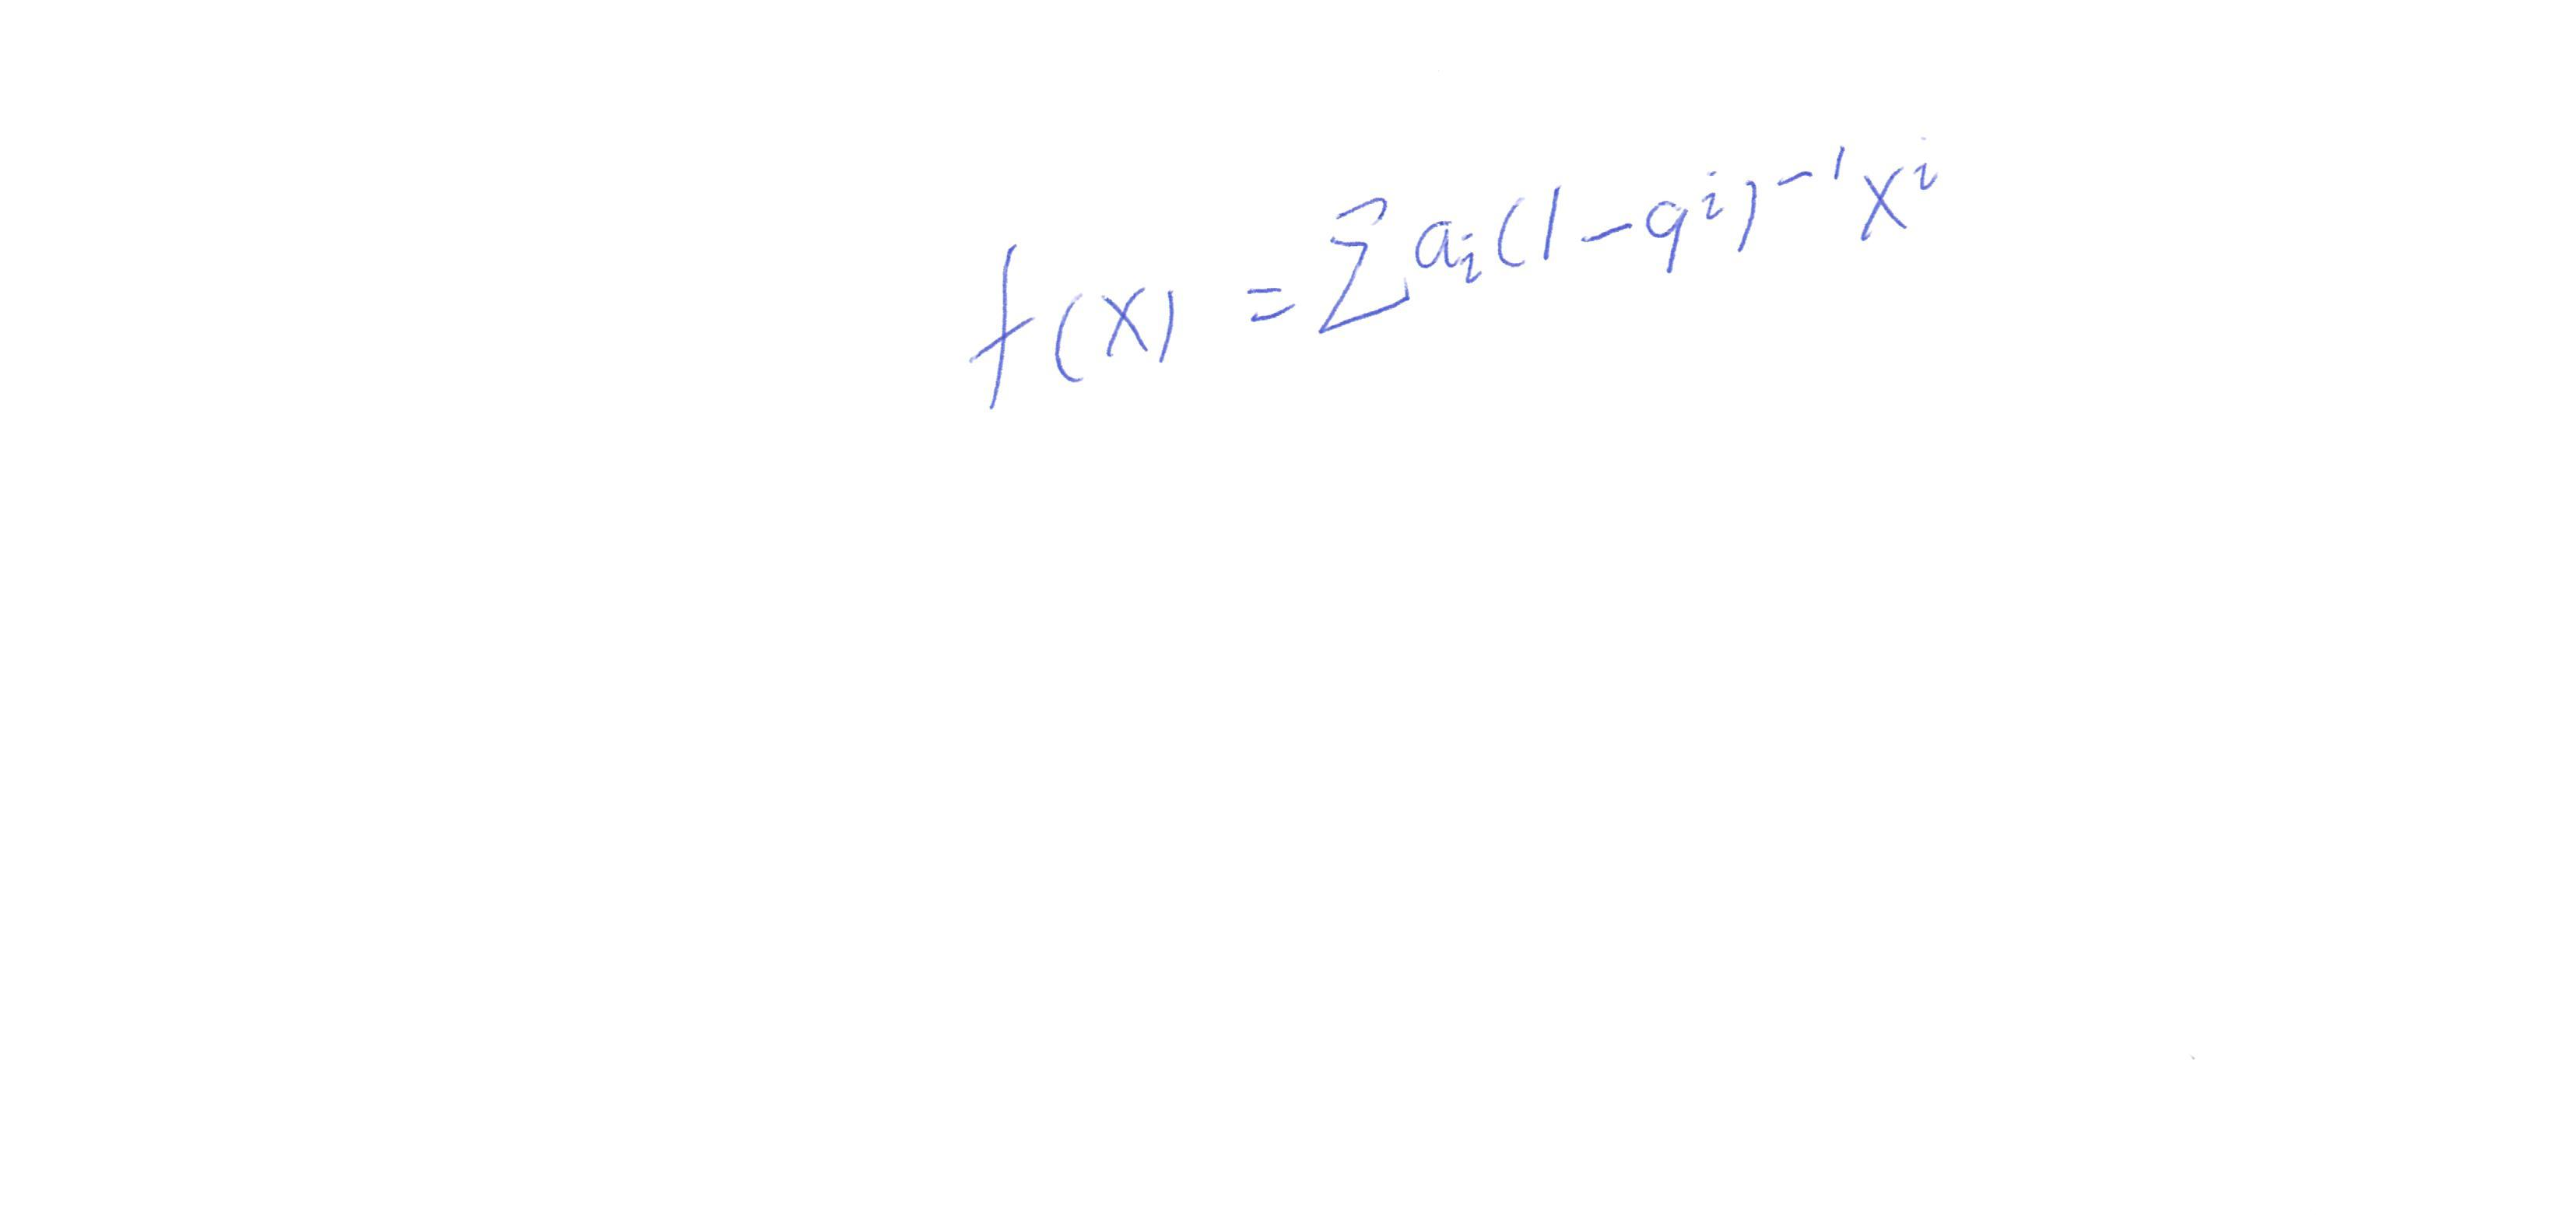 f(x) = ∑ a_i (1 - q^i)^{-1} x^i